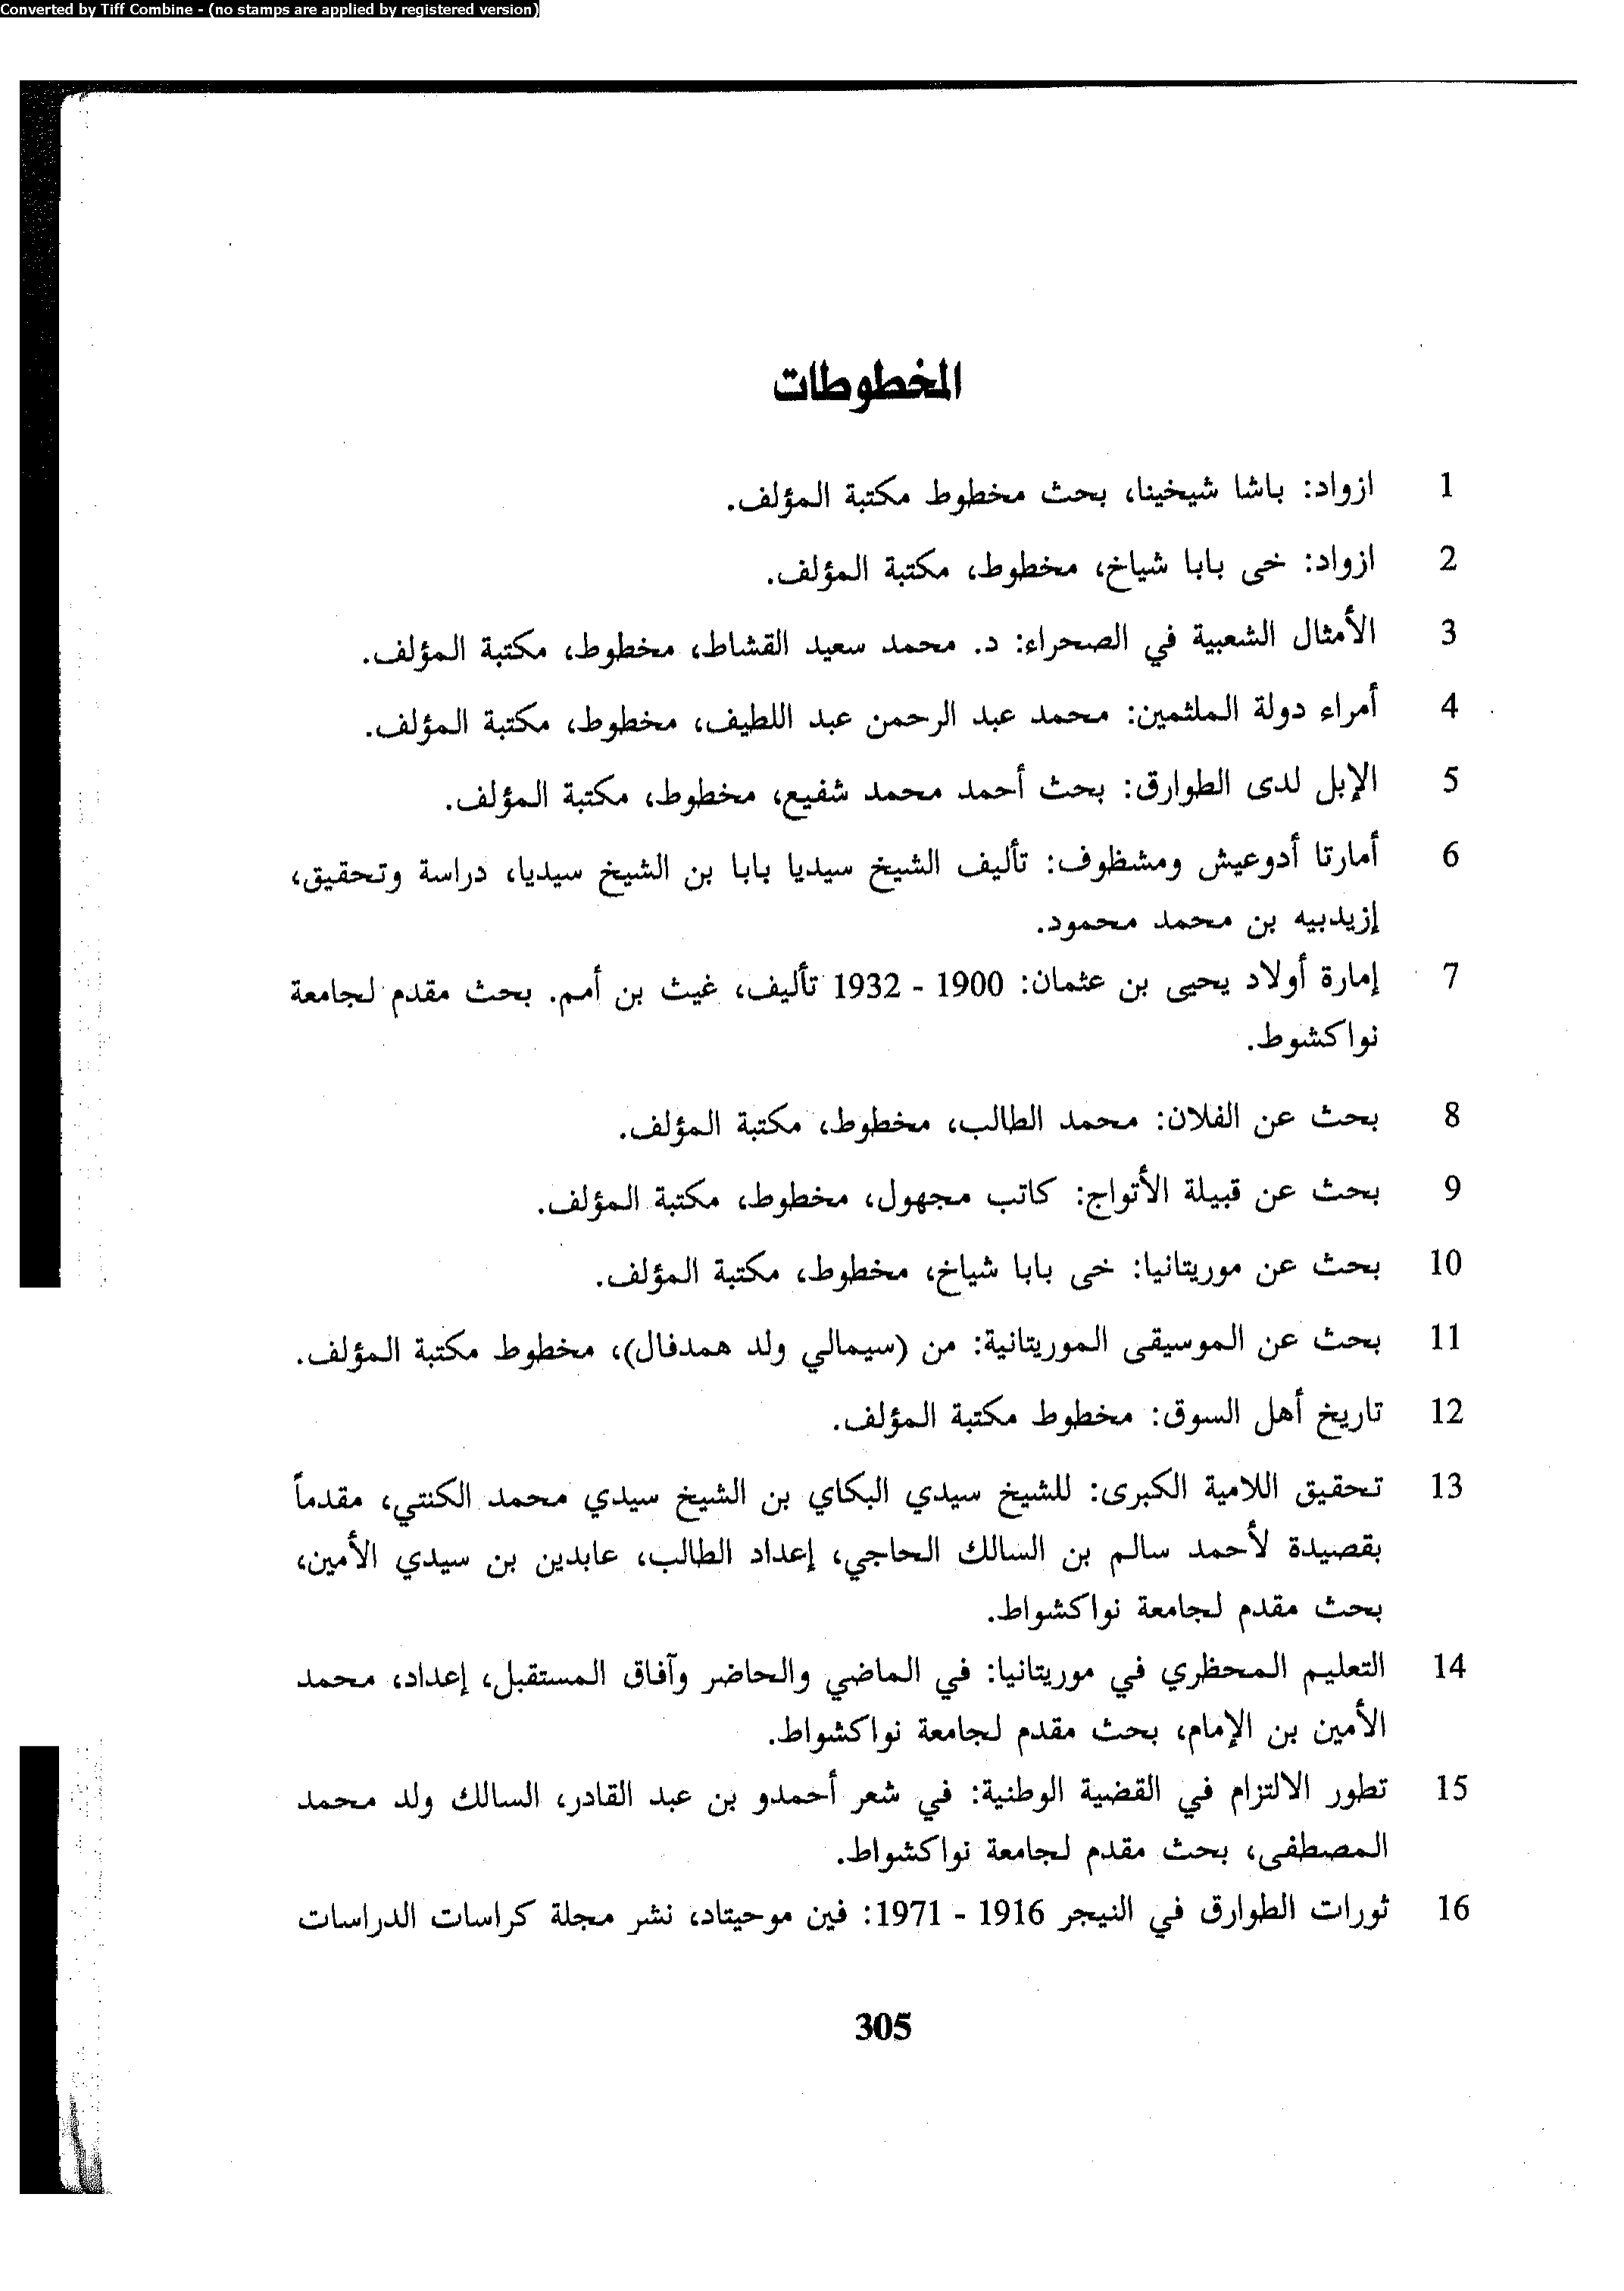 Converted by Tiff Combine - (no stamps are applied by registered version)
المخطوطات
1 ازواد: باشا شيخينا، بحث مخطوط مكتبة المؤلف.
2 ازواد: خى بابا شياخ، مخطوط، مكتبة المؤلف.
3 الأمثال الشعبية في الصحراء: د. محمد سعيد القشاط، مخطوط، مكتبة المؤلف.
4 أمراء دولة الملثمين: محمد عبد الرحمن عبد اللطيف، مخطوط، مكتبة المؤلف.
5 الإبل لدى الطوارق: بحث أحمد محمد شفيع، مخطوط، مكتبة المؤلف.
6 أمارتا أدوعيش ومشظوف: تأليف الشيخ سيديا بابا بن الشيخ سيديا، دراسة وتحقيق،
إزيدبيه بن محمد محمود.
7 إمارة أولاد يحيى بن عثمان: 1900 - 1932 تأليف، غيث بن أمم. بحث مقدم لجامعة
نواكشوط.
8 بحث عن الفلان: محمد الطالب، مخطوط، مكتبة المؤلف.
9 بحث عن قبيلة الأتواج: كاتب مجهول، مخطوط، مكتبة المؤلف.
10 بحث عن موريتانيا: خى بابا شياخ، مخطوط، مكتبة المؤلف.
11 بحث عن الموسيقى الموريتانية: من (سيمالي ولد همدفال)، مخطوط مكتبة المؤلف.
12 تاريخ أهل السوق: مخطوط مكتبة المؤلف.
13 تحقيق اللامية الكبرى: للشيخ سيدي البكاي بن الشيخ سيدي محمد الكنتي، مقدماً
بقصيدة لأحمد سالم بن السالك الحاجي، إعداد الطالب، عابدين بن سيدي الأمين،
بحث مقدم لجامعة نواكشواط.
14 التعليم المحظري في موريتانيا: في الماضي والحاضر وآفاق المستقبل، إعداد، محمد
الأمين بن الإمام، بحث مقدم لجامعة نواكشواط.
15 تطور الالتزام في القضية الوطنية: في شعر أحمدو بن عبد القادر، السالك ولد محمد
المصطفى، بحث مقدم لجامعة نواكشواط.
16 ثورات الطوارق في النيجر 1916 - 1971: فين موحيتاد، نشر مجلة كراسات الدراسات
305